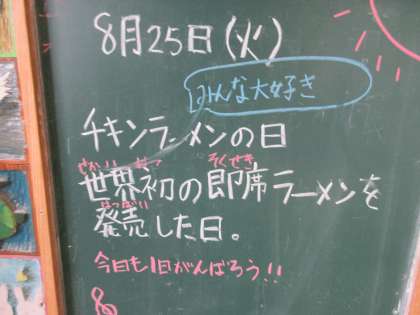 8月25日(火)
みんな大好き
チキンラーメンの日
せかい はつ そくせき
世界初の即席ラーメンを
はつばい
発売した日。
今日も1日がんばろう!!